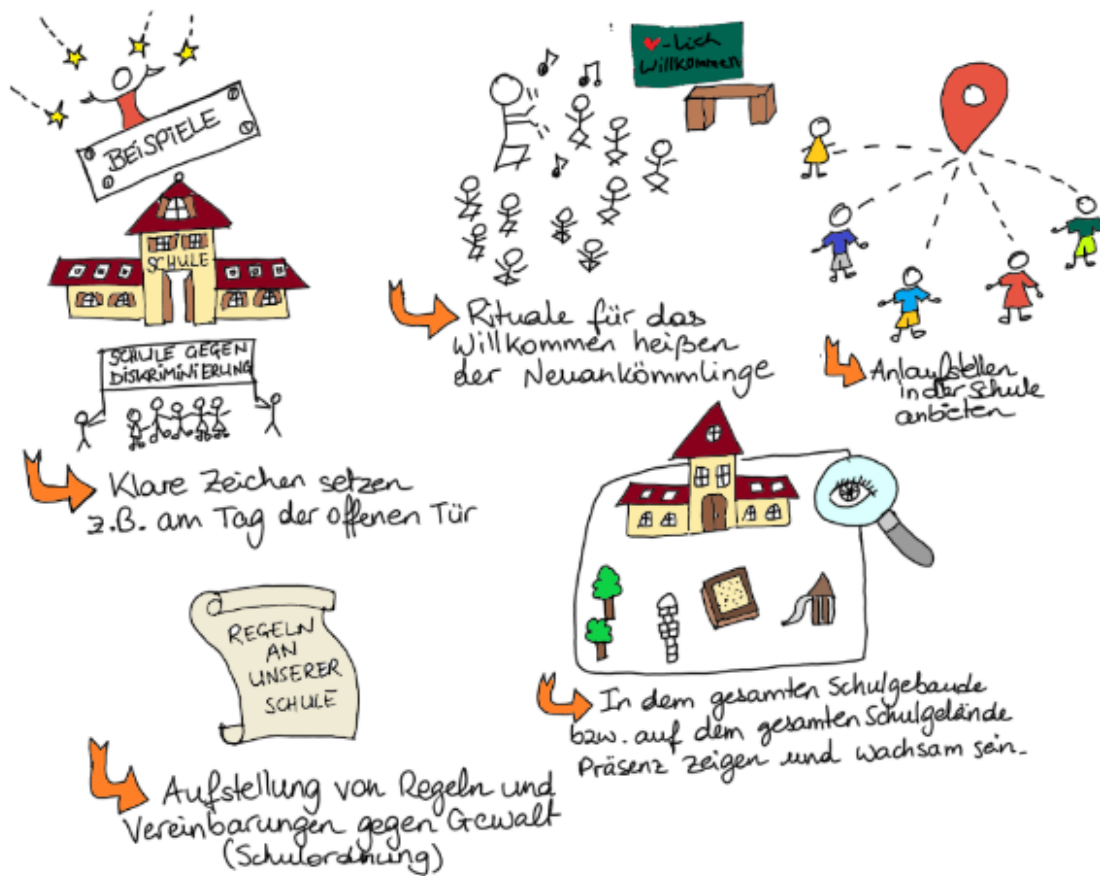 BEISPIELE
SCHULE
SCHULE GEGEN
DISKRIMINIERUNG
Klare Zeichen setzen
z.B. am Tag der offenen Tür
♥-lich
Willkommen
Rituale für das
Willkommen heißen
der Neuankömmlinge
Anlaufstellen
in der Schule
anbieten
REGELN
AN
UNSERER
SCHULE
Aufstellung von Regeln und
Vereinbarungen gegen Gewalt
(Schulordnung)
In dem gesamten Schulgebäude
bzw. auf dem gesamten Schulgelände
Präsenz zeigen und wachsam sein.